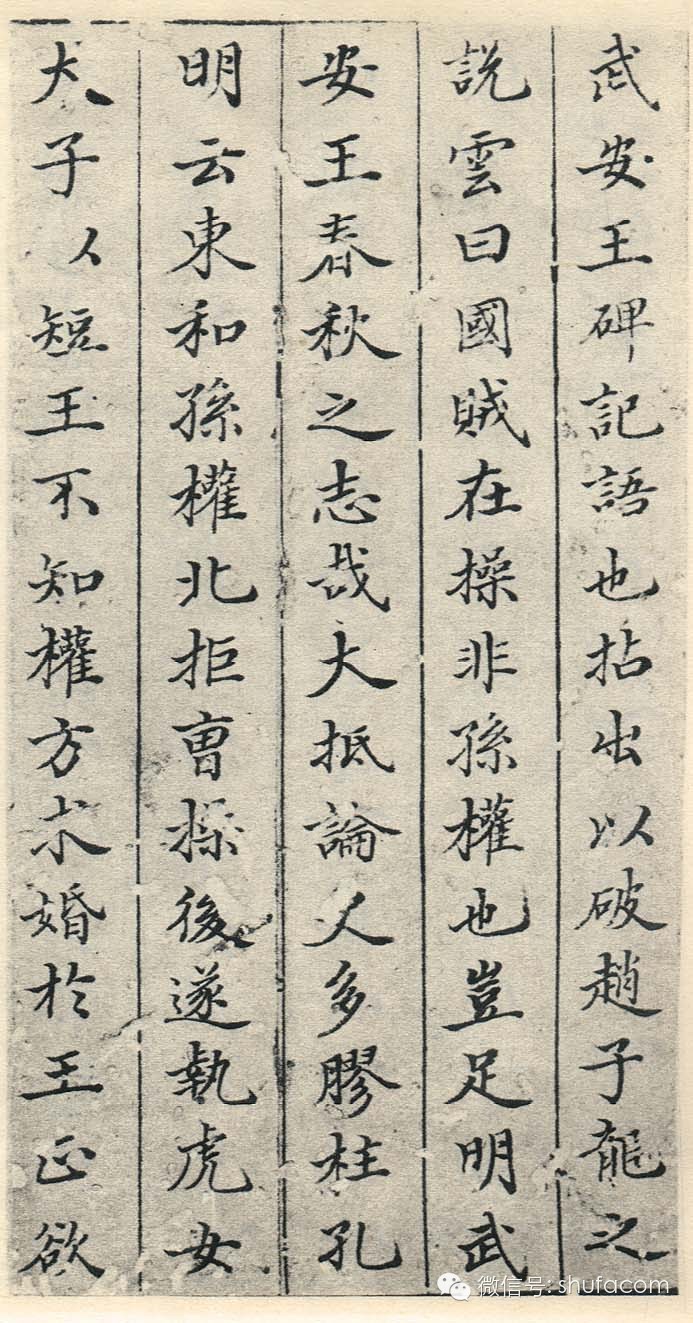 武安王碑記語也拈出以破趙子龍之
說雲曰國賊在操非孫權也豈足明武
安王春秋之志哉大抵論人多膠柱孔
明云東和孫權北拒曹操後遂執虎女
犬子以短王不知權方求婚於王正欲
微信号: shufacom